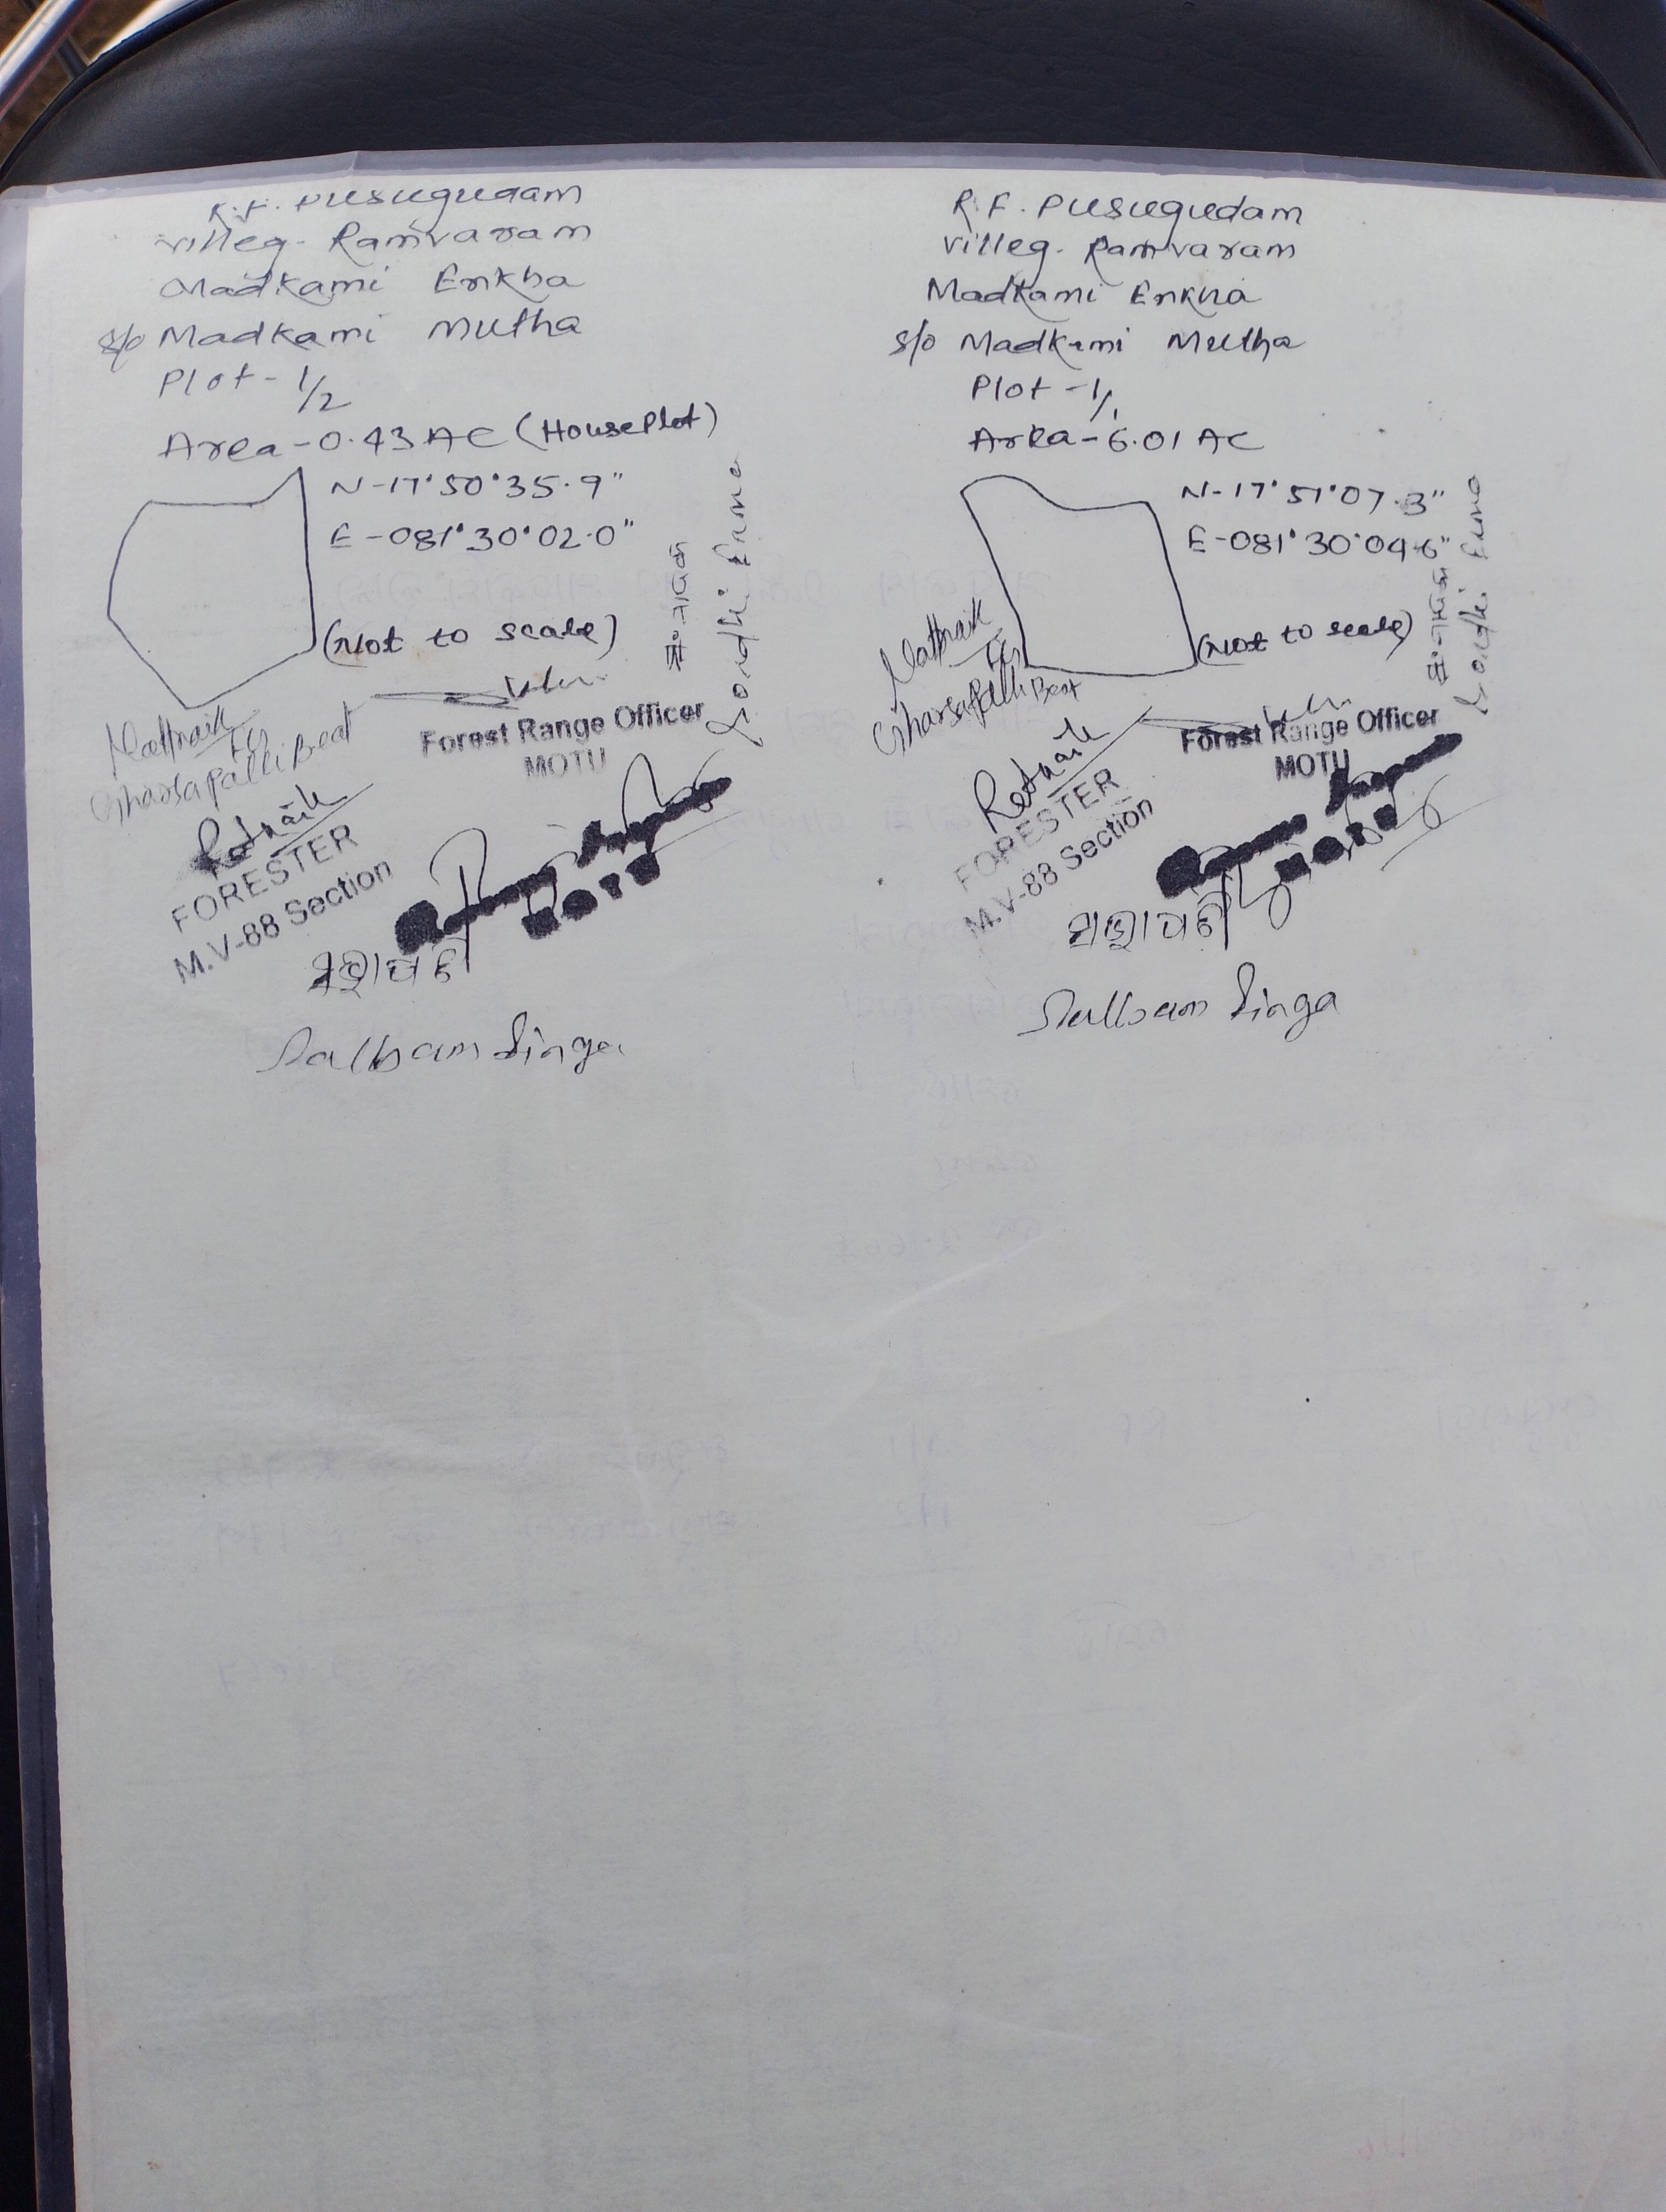 R.F. Pusugudam
villeg- Ramvaram
Madkami Enkha
S/o Madkami Mutha
Plot- 1/2
Area-0.43 AC (House Plot)
N-17°50°35.9"
E-081°30°02.0"
(Not to scale)
Forest Range Officer
MOTU
Gharsapalli Beat
FORESTER
M.V-88 Section
ସଭାପତି
Salbam Singa
R.F. Pusugudam
villeg- Ramvaram
Madkami Enkha
S/o Madkami Mutha
Plot-1/1
Area-6.01 AC
N-17°51°07.3"
E-081°30°04.6"
(Not to scale)
Forest Range Officer
MOTU
Gharsapalli Beat
FORESTER
M.V-88 Section
ସଭାପତି
Salbam Singa